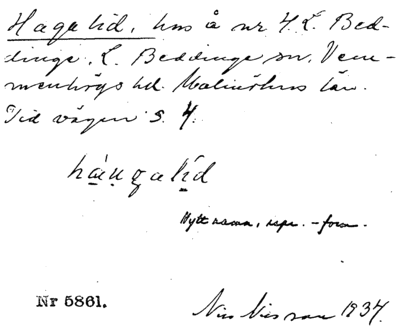 Hagalid, hus å nr 4 L. Bed-
dinge, L. Beddinge sn, Vem-
menhögs hd. Malmöhus län.
Vid vägen s. 4.
háu̯galid
Nytt namn, rspr.-form.
Nr 5861.
Nils Nilsson 1934.